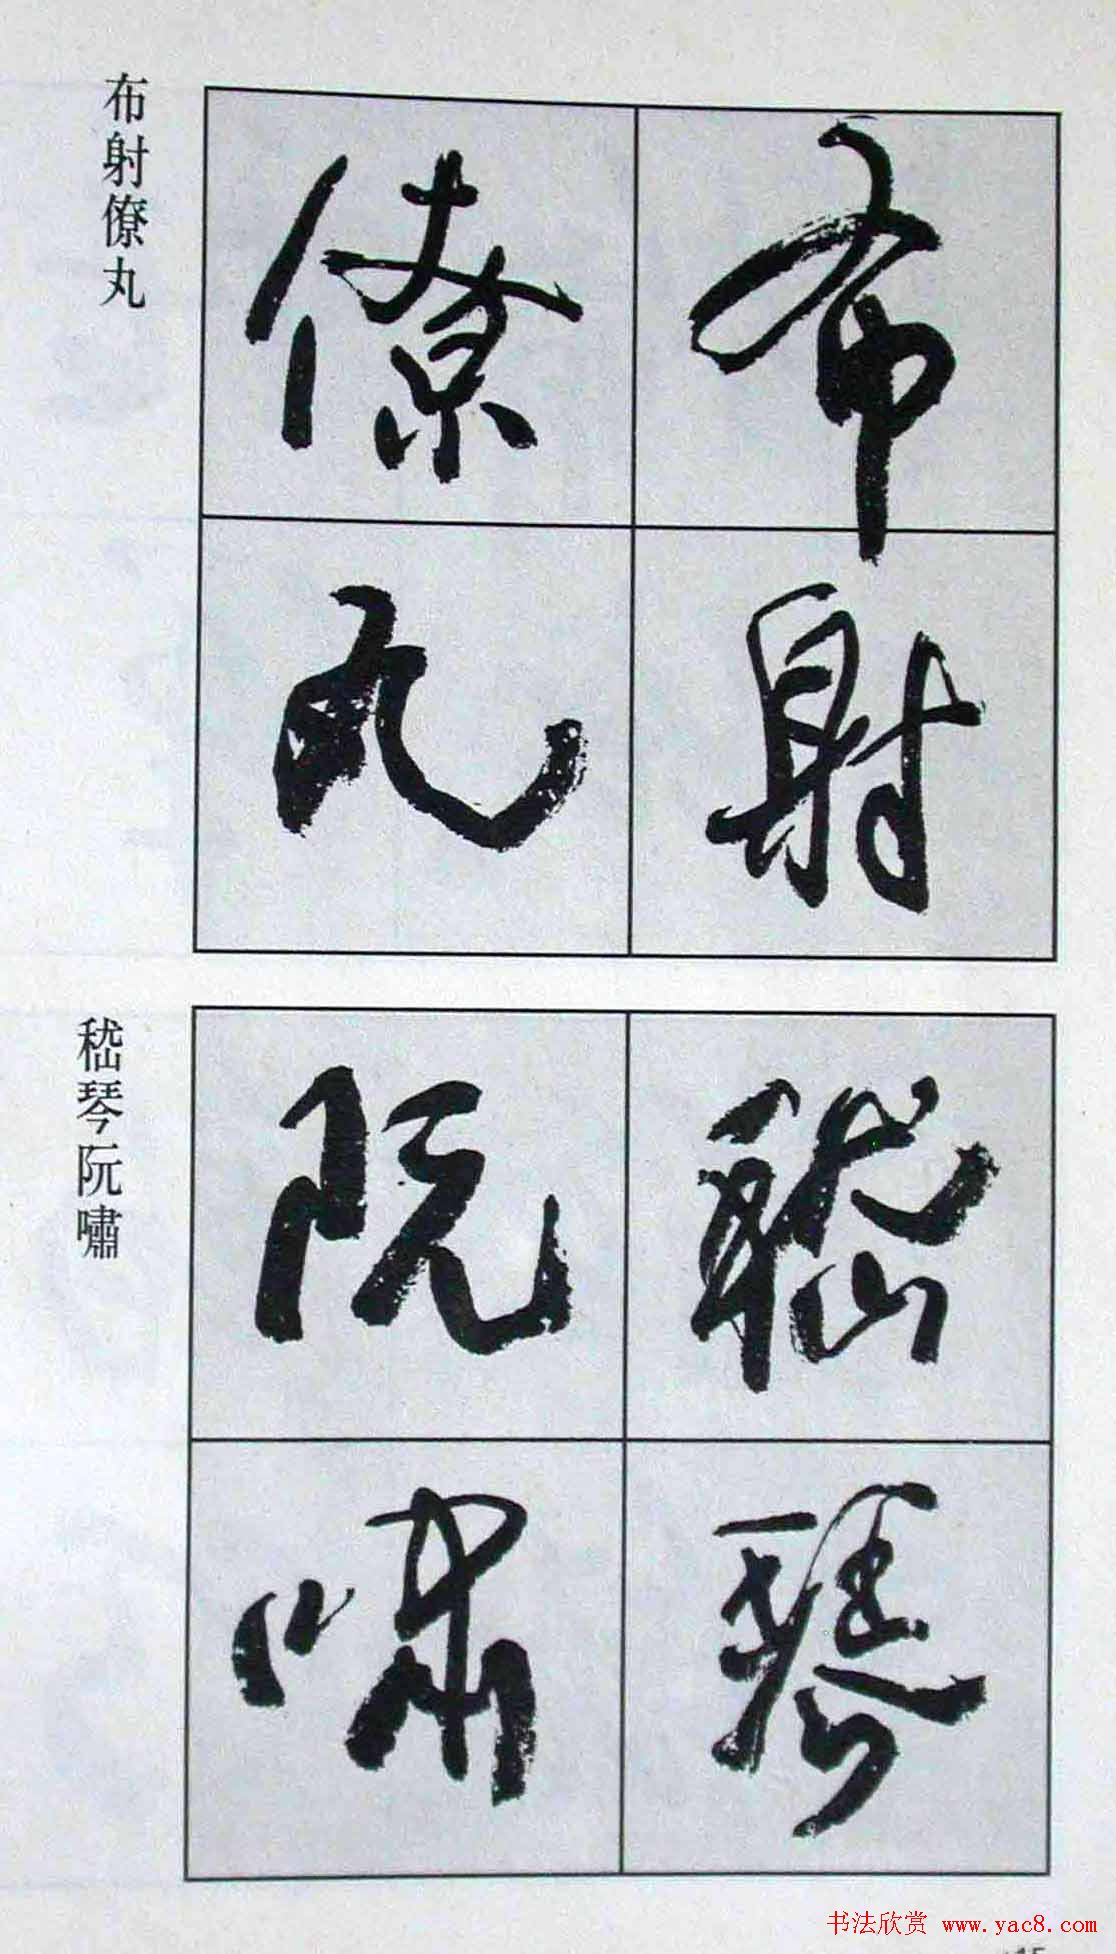 布射
僚丸
布射僚丸
嵇琴
阮嘯
嵇琴阮嘯
书法欣赏 www.yac8.com